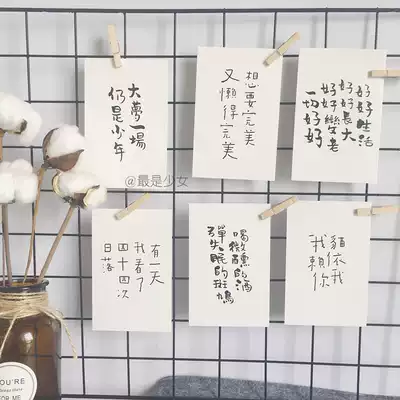 大夢一場
仍是少年
想要完美
又懶得完美
好好生活
好好長大
好好變老
一切好好
@最是少女
有一天
我看了
四十四次
日落
喝微醺的酒
彈失眠的斑鳩
貓依我
我賴你
YOU'RE
FOR ME